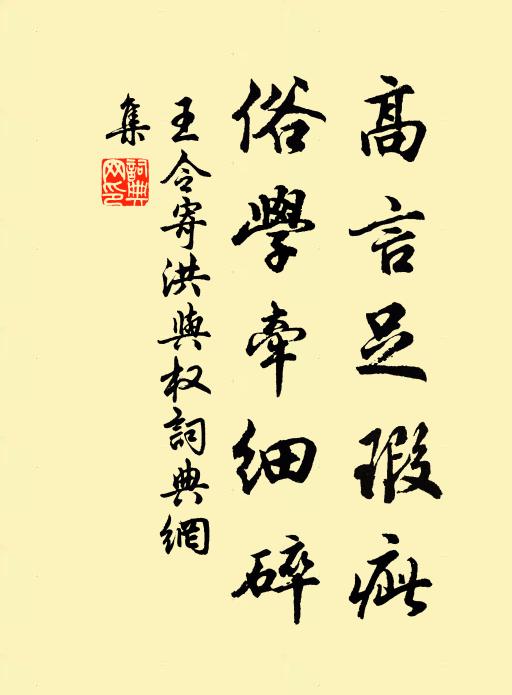 高言足瑕疵
俗學牽細碎
王令寄洪與权詞典網
集
詞典网印